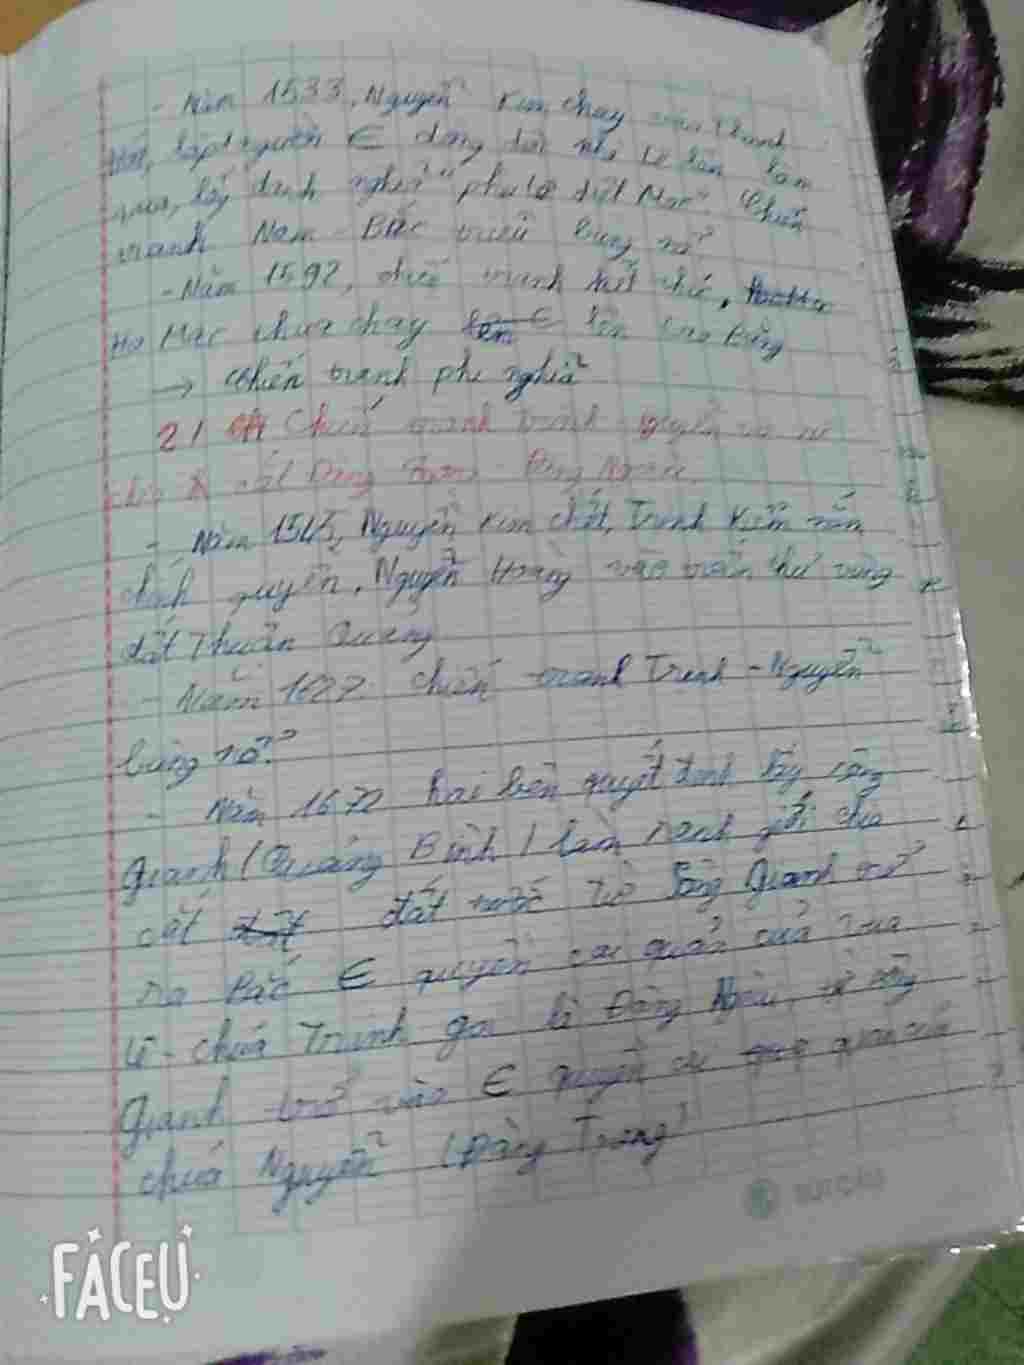 - Năm 1533, Nguyễn Kim chạy vào Thanh
Hoá, lập 1 người ∈ dòng dõi nhà Lê lên làm
vua, lấy danh nghĩa "phù Lê diệt Mạc". Chiến
tranh Nam - Bắc triều bùng nổ
- Năm 1592, chiến tranh kết thúc,
Họ Mạc chưa chạy lên Cao Bằng
→ Chiến tranh phi nghĩa
2/ Chiến tranh Trịnh Nguyễn và sự
chia cắt Đàng Trong - Đàng Ngoài.
- Năm 1545, Nguyễn Kim chết, Trịnh Kiểm nắm
chính quyền, Nguyễn Hoàng vào trấn thủ vùng
đất Thuận Quảng
- Năm 1627 chiến tranh Trịnh - Nguyễn
bùng nổ.
- Năm 1672 hai bên quyết định lấy sông
Gianh (Quảng Bình) làm ranh giới chia
cắt đất nước Từ Sông Gianh trở
ra Bắc ∈ quyền cai quản của vua
Lê - chúa Trịnh gọi là Đàng Ngoài, từ sông
Gianh trở vào ∈ quyền cai quản của
chúa Nguyễn (Đàng Trong)
FACEU